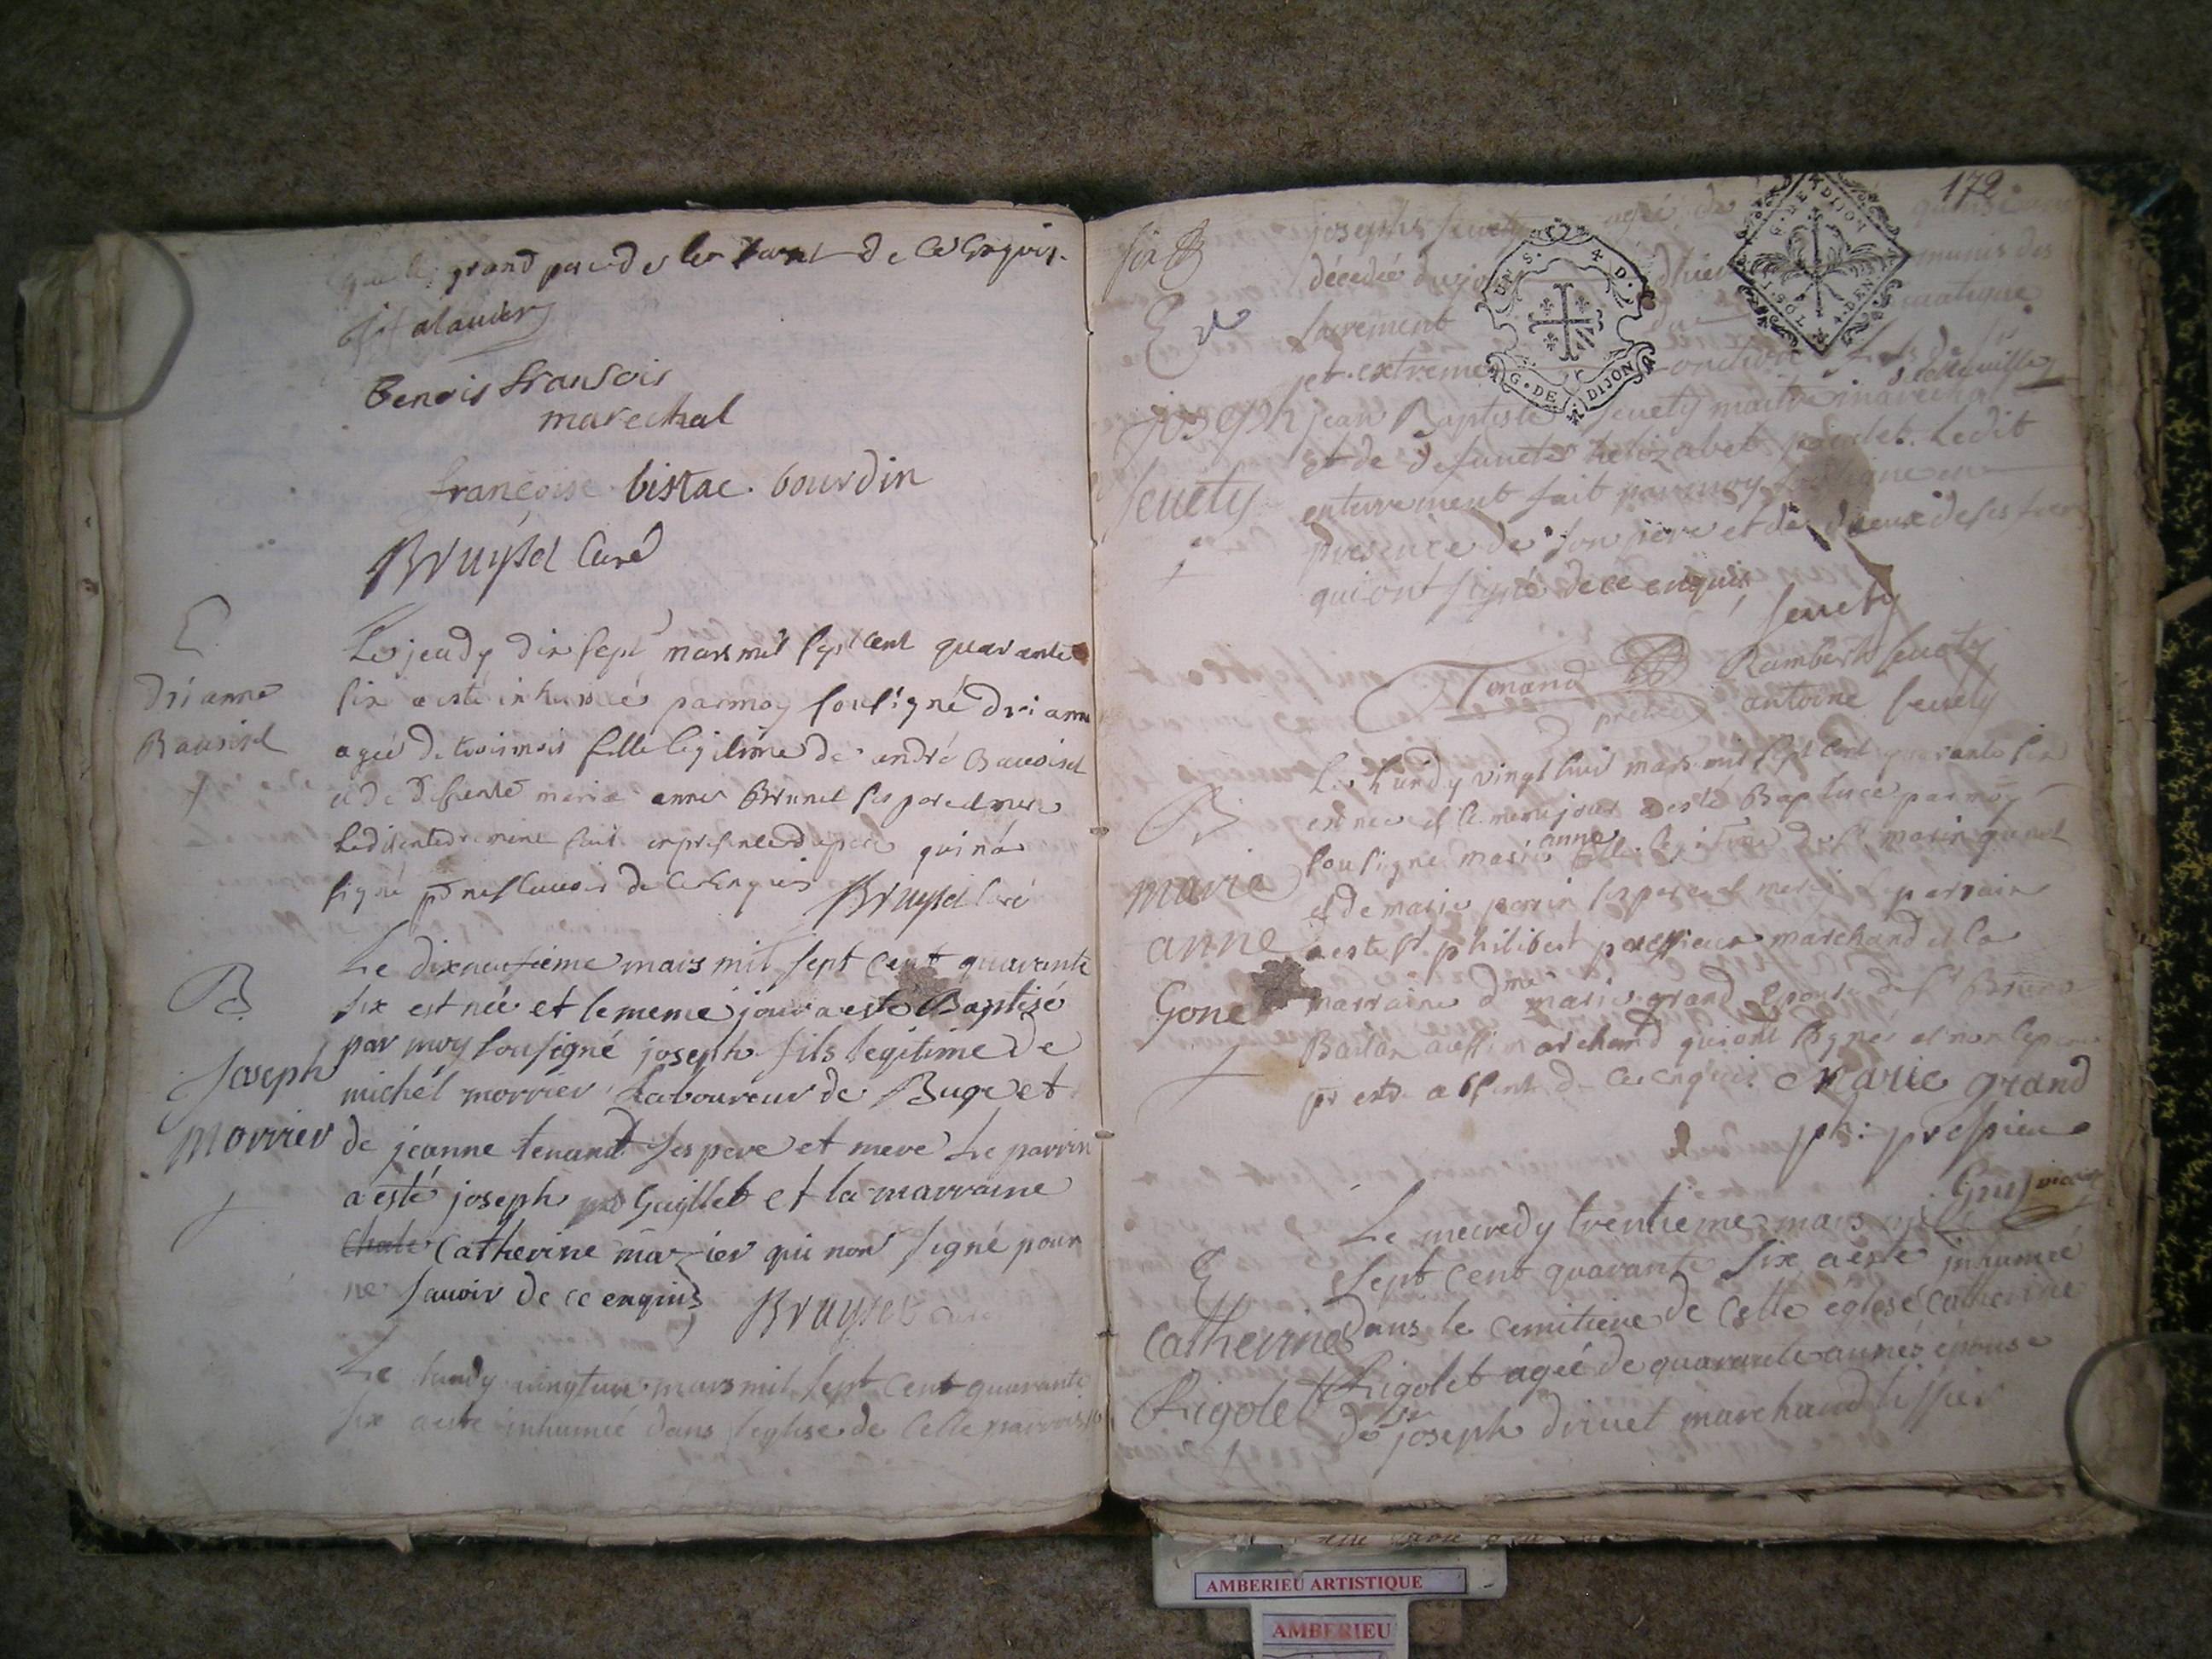 grand pere de les Savoir de ce Enquis.
alauier
Benois fransois
marechal
françoise bistac bourdin
Bruyset Curé
E
Dri anne
Bauoisel
Le jeudy dix sept mars mil sept cent quarante
six a esté inhumée par moy sousigné Dri anne
agée de trois mois fille legitime de andré Bauoisel
et de Deffunte marie anne Brunet ses pere et mere
Ledit enterrement fait en presence du pere qui n'a
signé pr ne sauoir de ce Enquis Bruyset Curé
B
Joseph
Morrier
Le dixneufieme mars mil sept cent quarante
six est née et le meme jour a esté Baptisé
par moy sousigné joseph fils legitime de
michel morrier Laboureur de Buge et
de jeanne tenand ses pere et mere Le parrin
a esté joseph Gayllet et la marraine
Catherine mazier qui non signé pour
ne sauoir de ce enquis Bruyset Curé
Le lundy vingtun mars mil sept cent quarante
six a esté inhumé dans l'eglise de Celle parroisse
172
six
E
joseph
seuety
josephs seuety agée de quinze
décedée du jour d'hier munis des
sacrement
et extreme onction fils de
jean Baptiste seuety maitre marechal
et de defuncte helizabet Ledit
enterrement fait par moy sousigné en
presence de son pere et de deux de ses freres
qui ont signé de ce enquis
seuety
Tenand Rambert seuety
prêtre antoine seuety
GEN. DE DIJON
G. DE DIJON
B
marie
anne
Gonet
Le Lundy vingt huit mars mil sept cent quarante six
est née et le meme jour a esté Baptisée par moy
sousigné marie anne fille legitime de sr marin gonet
et de marie perrin ses pere et mere Le parrain
a esté sr philibert pressieux marchand et la
marraine dme marie grand Epouse de sr Bruno
aussi marchand qui ont signés et non le pere
pr estre absent de ce enquis. Marie grand
ph: pressieux
Guy vicaire
E
Catherine
Rigolet
Le mecredy trentieme mars mil
sept cent quarante six a esté inhumée
dans le cemitiere de Celle église Catherine
Rigolet agée de quarante années épouse
de sr joseph druet marchand tissier
AMBERIEU ARTISTIQUE
AMBERIEU